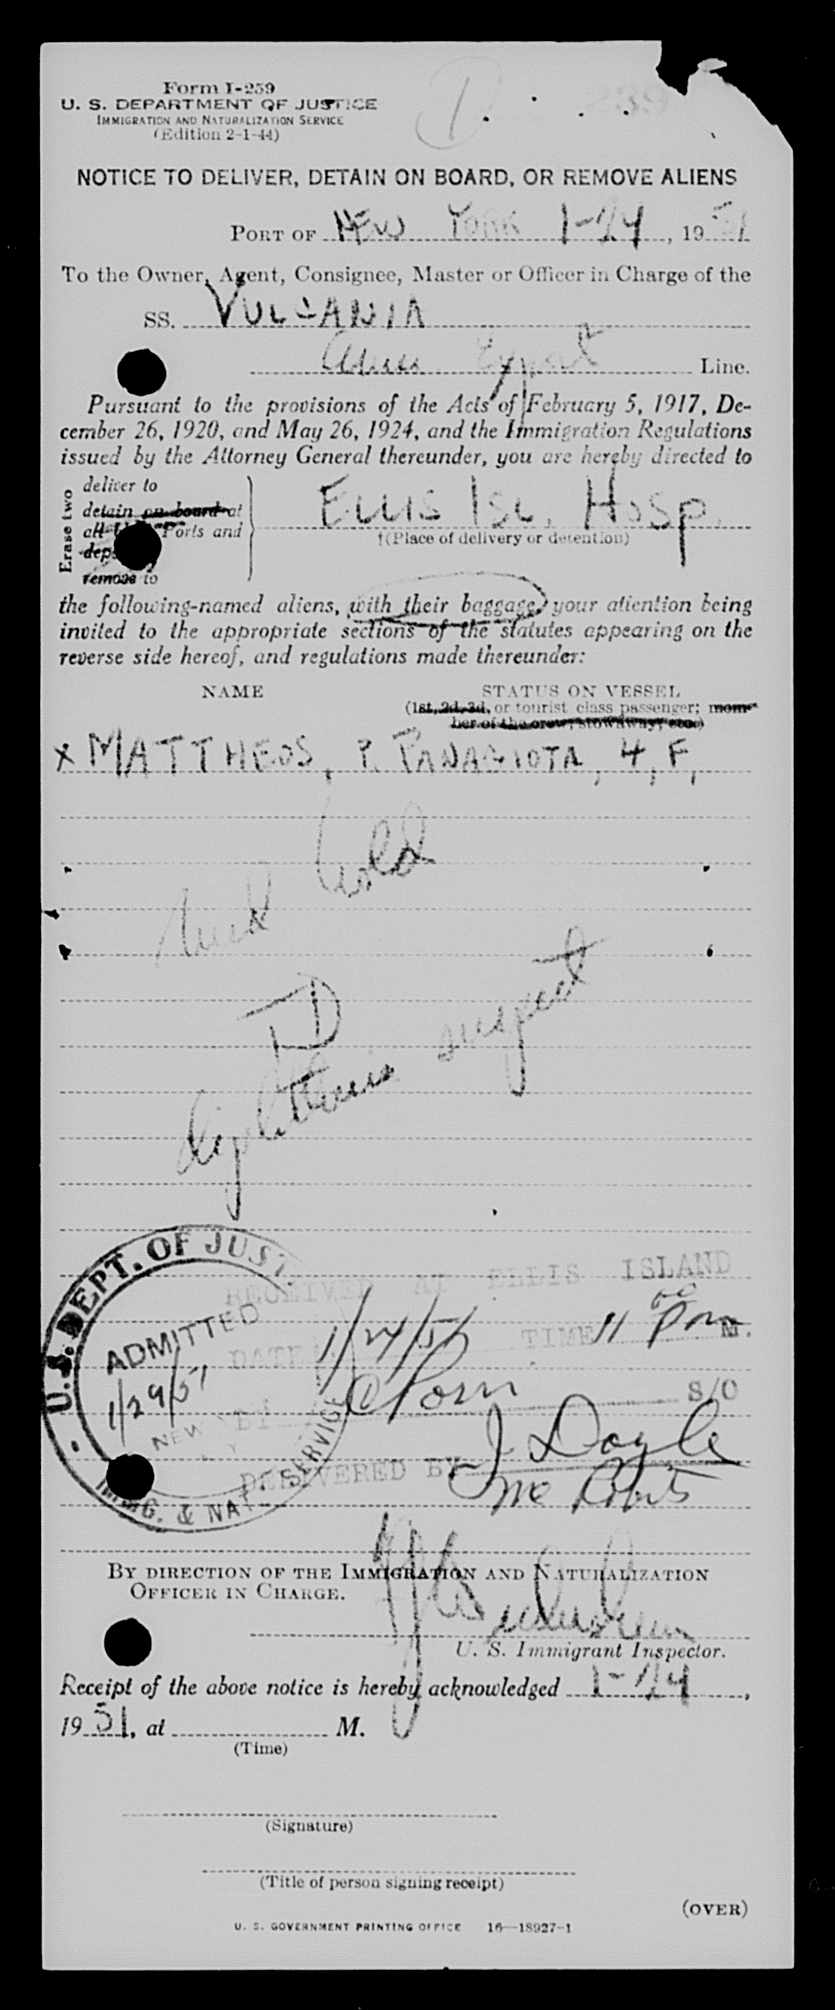 Form I-259
U. S. DEPARTMENT OF JUSTICE
IMMIGRATION AND NATURALIZATION SERVICE
(Edition 2-1-44)
1
239
NOTICE TO DELIVER, DETAIN ON BOARD, OR REMOVE ALIENS
PORT OF NEW YORK 1-24, 1951
To the Owner, Agent, Consignee, Master or Officer in Charge of the
SS. VULCANIA
Amer Export Line.
Pursuant to the provisions of the Acts of February 5, 1917, De-
cember 26, 1920, and May 26, 1924, and the Immigration Regulations
issued by the Attorney General thereunder, you are hereby directed to
Erase two
deliver to
detain on board at
all Ports and
remove to
ELLIS ISL. HOSP.
†(Place of delivery or detention)
the following-named aliens, with their baggage, your attention being
invited to the appropriate sections of the statutes appearing on the
reverse side hereof, and regulations made thereunder:
NAME
STATUS ON VESSEL
(1st, 2d, 3d, or tourist class passenger; mem-
ber of the crew, stowaway, etc.)
x MATTHEOS, P. PANAGIOTA, 4, F,
Med Hold
TD
diphtheria suspect
U.S. DEPT. OF JUST.
ADMITTED
1/29/51
NEW
IMMG. & NAT. SERVICE
RECEIVED AT ELLIS ISLAND
DATE 1/24/51 TIME 11 00 Pm M.
BY S/O
DELIVERED BY J Doyle
BY DIRECTION OF THE IMMIGRATION AND NATURALIZATION
OFFICER IN CHARGE.
U. S. Immigrant Inspector.
Receipt of the above notice is hereby acknowledged 1-24,
1951, at M.
(Time)
(Signature)
(Title of person signing receipt)
(OVER)
U. S. GOVERNMENT PRINTING OFFICE 16—18927-1